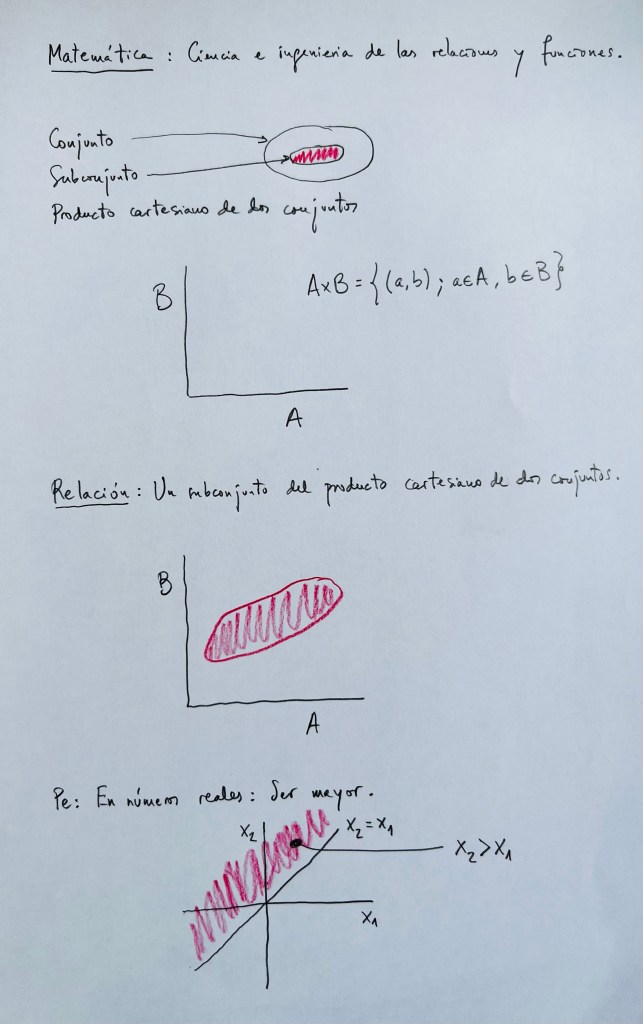 Matemática : Ciencia e ingenieria de las relaciones y funciones.
Conjunto
Subconjunto
Producto cartesiano de dos conjuntos
B
A×B = {(a,b) ; a∈A, b∈B}
A
Relación : Un subconjunto del producto cartesiano de dos conjuntos.
B
A
Pe: En números reales: Ser mayor.
X₂
X₂=X₁
X₂>X₁
X₁